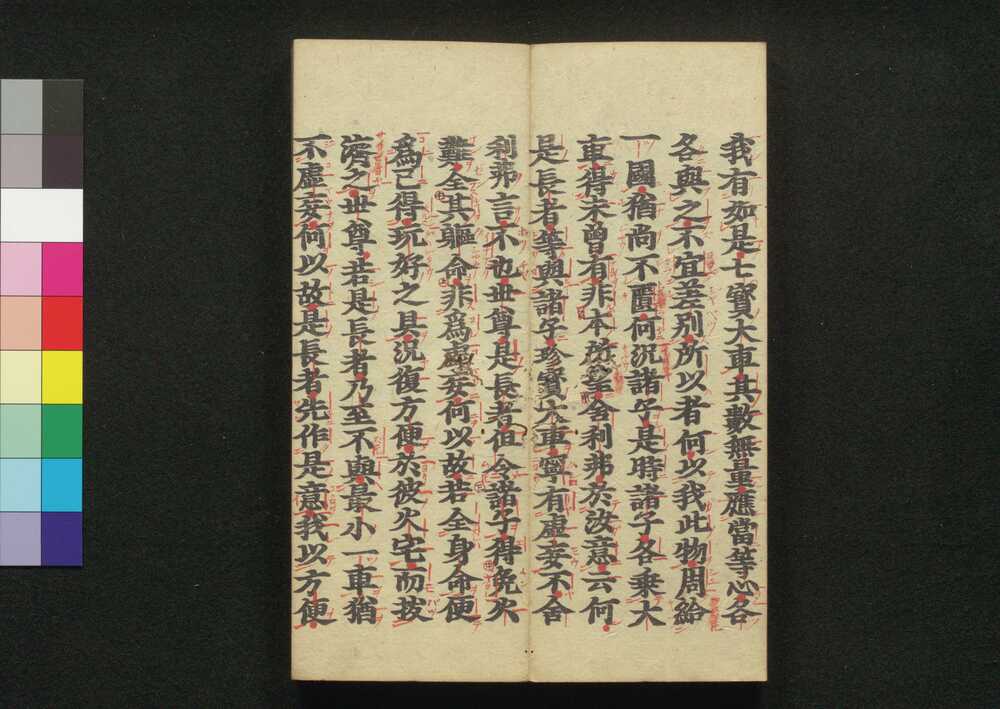 我有如是七寳大車其數無量應當等心各
各與之不宜差別所以者何以我此物周給
一國猶尚不匱何況諸子是時諸子各乘大
車得未曾有非本所望舍利弗於汝意云何
是長者等與諸子珍寳大車寧有虛妄不舍
利弗言不也世尊是長者但令諸子得免火
難全其軀命非爲虛妄何以故若全身命便
爲已得玩好之具況復方便於彼火宅而拔
濟之世尊若是長者乃至不與最小一車猶
不虛妄何以故是長者先作是意我以方便